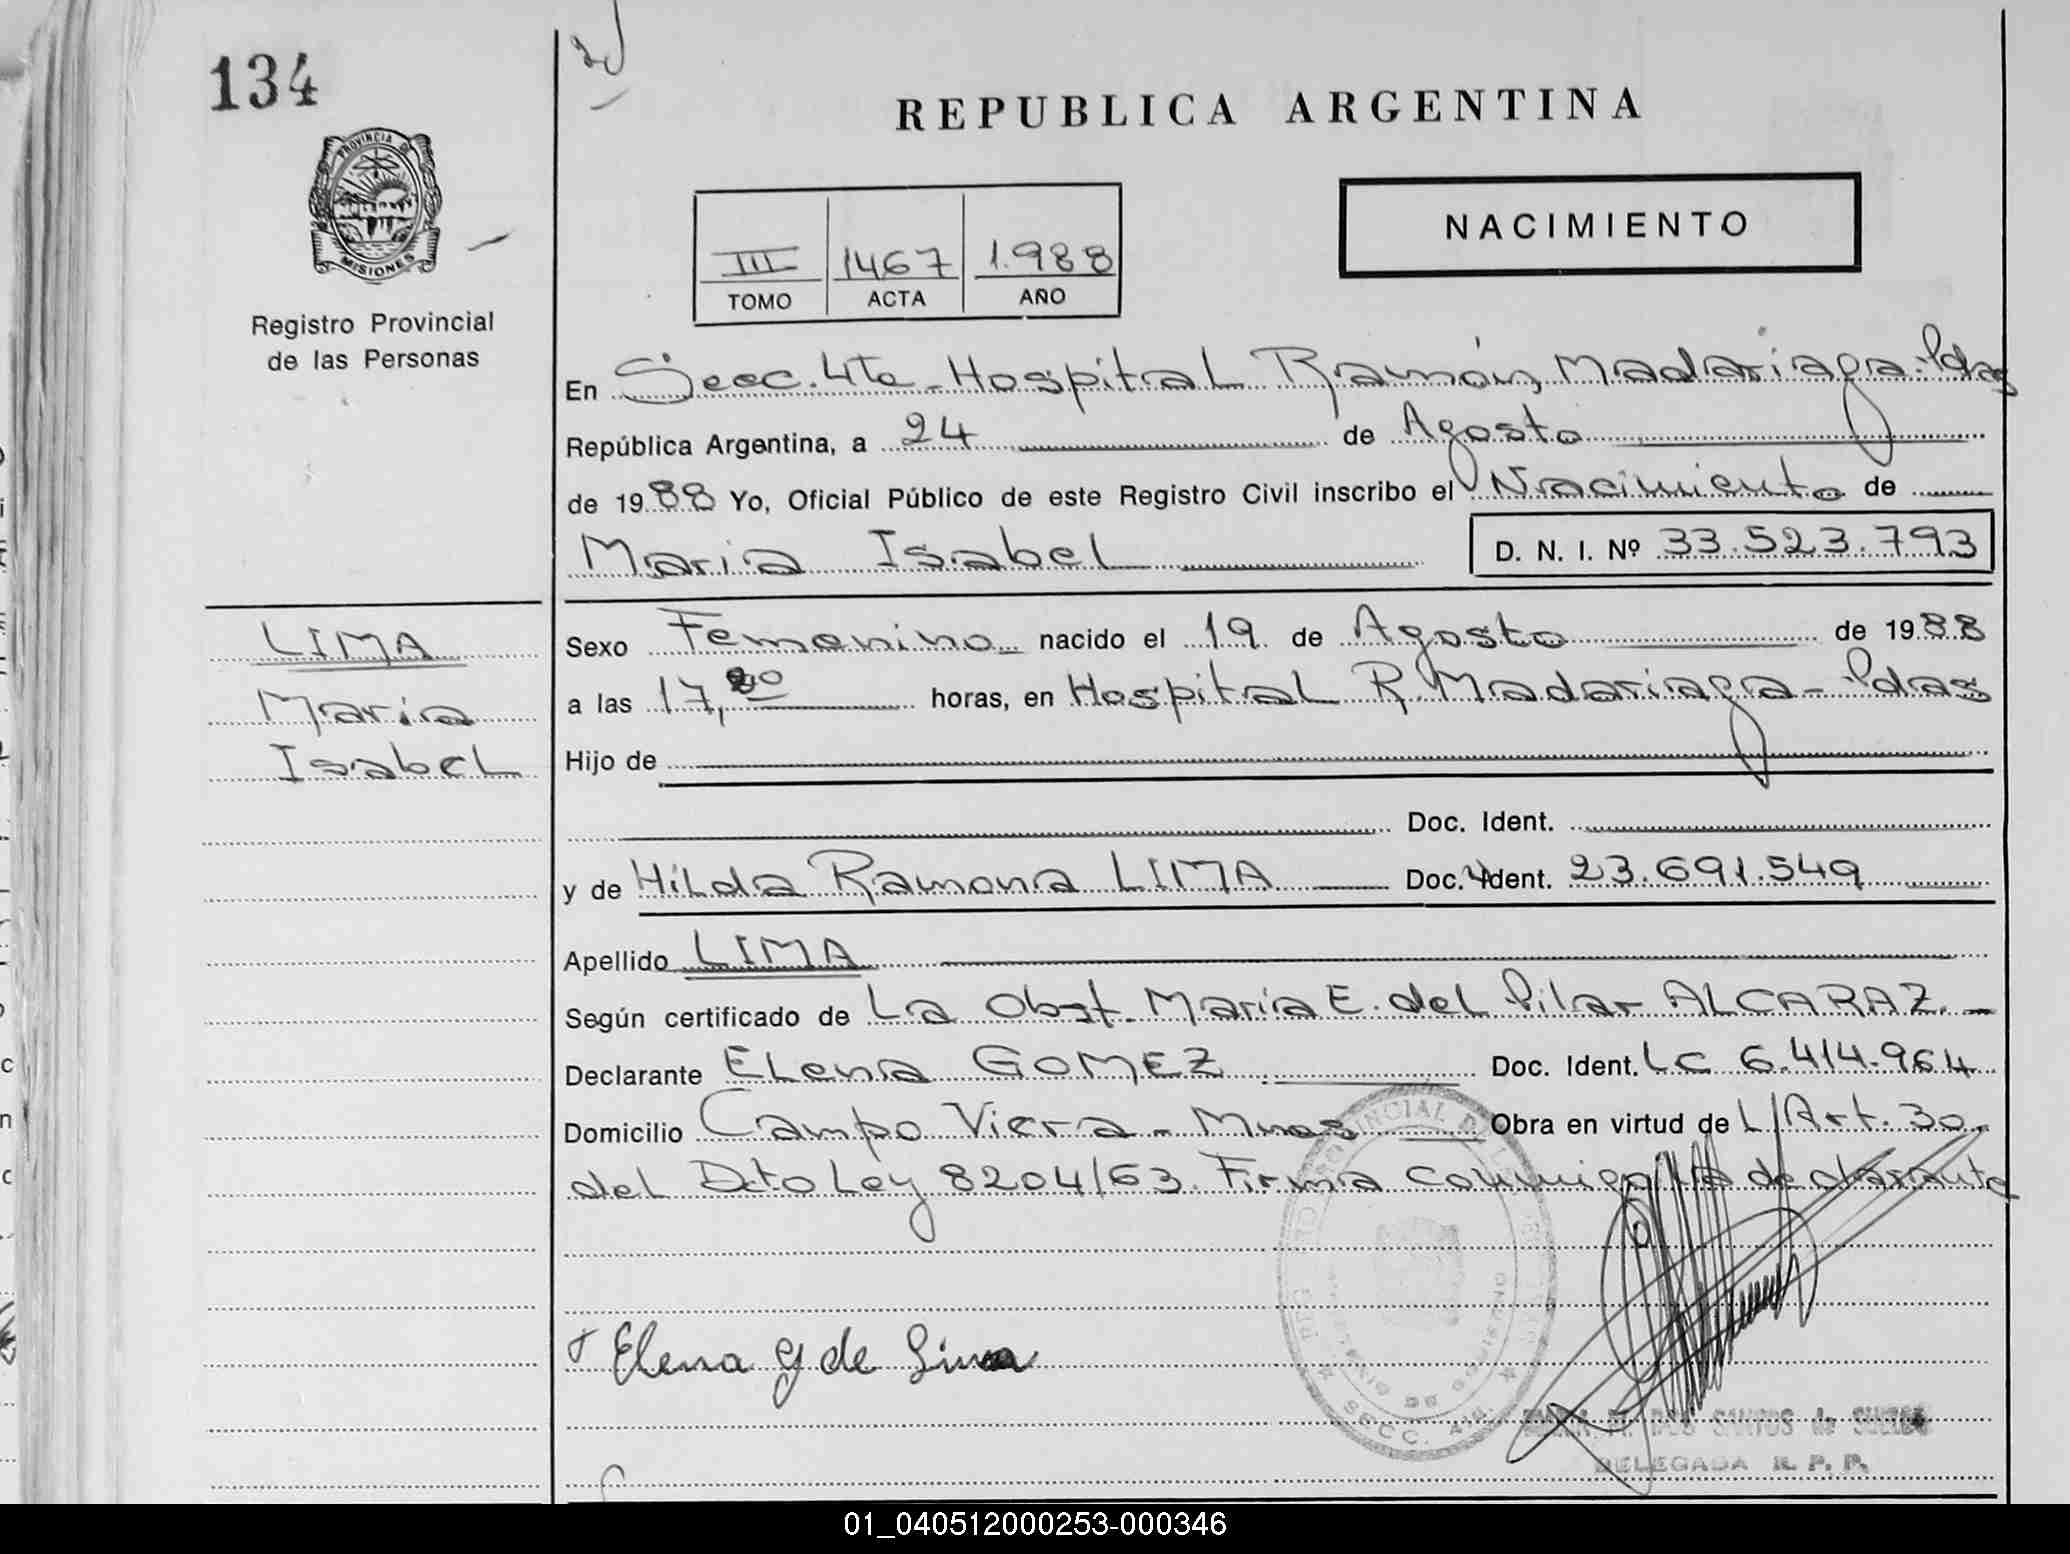 134
REPUBLICA ARGENTINA
PROVINCIA DE
MISIONES
NACIMIENTO
III 1467 1.988
TOMO ACTA AÑO
Registro Provincial
de las Personas
En Secc. 4ta - Hospital Ramón Madariaga - Pdas
República Argentina, a 24 de Agosto
de 1988 Yo, Oficial Público de este Registro Civil inscribo el Nacimiento de
Maria Isabel D. N. I. Nº 33.523.793
LIMA
Maria
Isabel
Sexo Femenino nacido el 19 de Agosto de 1988
a las 17, horas, en Hospital R. Madariaga - Pdas
Hijo de
Doc. Ident.
y de Hilda Ramona LIMA Doc. Ident. 23.691.549
Apellido LIMA
Según certificado de La Obst. María E. del Pilar ALCARAZ.-
Declarante Elena GOMEZ Doc. Ident. LC 6.414.964
Domicilio Campo Viera - Mnes Obra en virtud de L/Art. 30
del Dcto Ley 8204/63. Firma conmigo la declarante
Elena G de Lima
SECC. 4ta.
M. DOS SANTOS de
DELEGADA R. P. P.
01_040512000253-000346